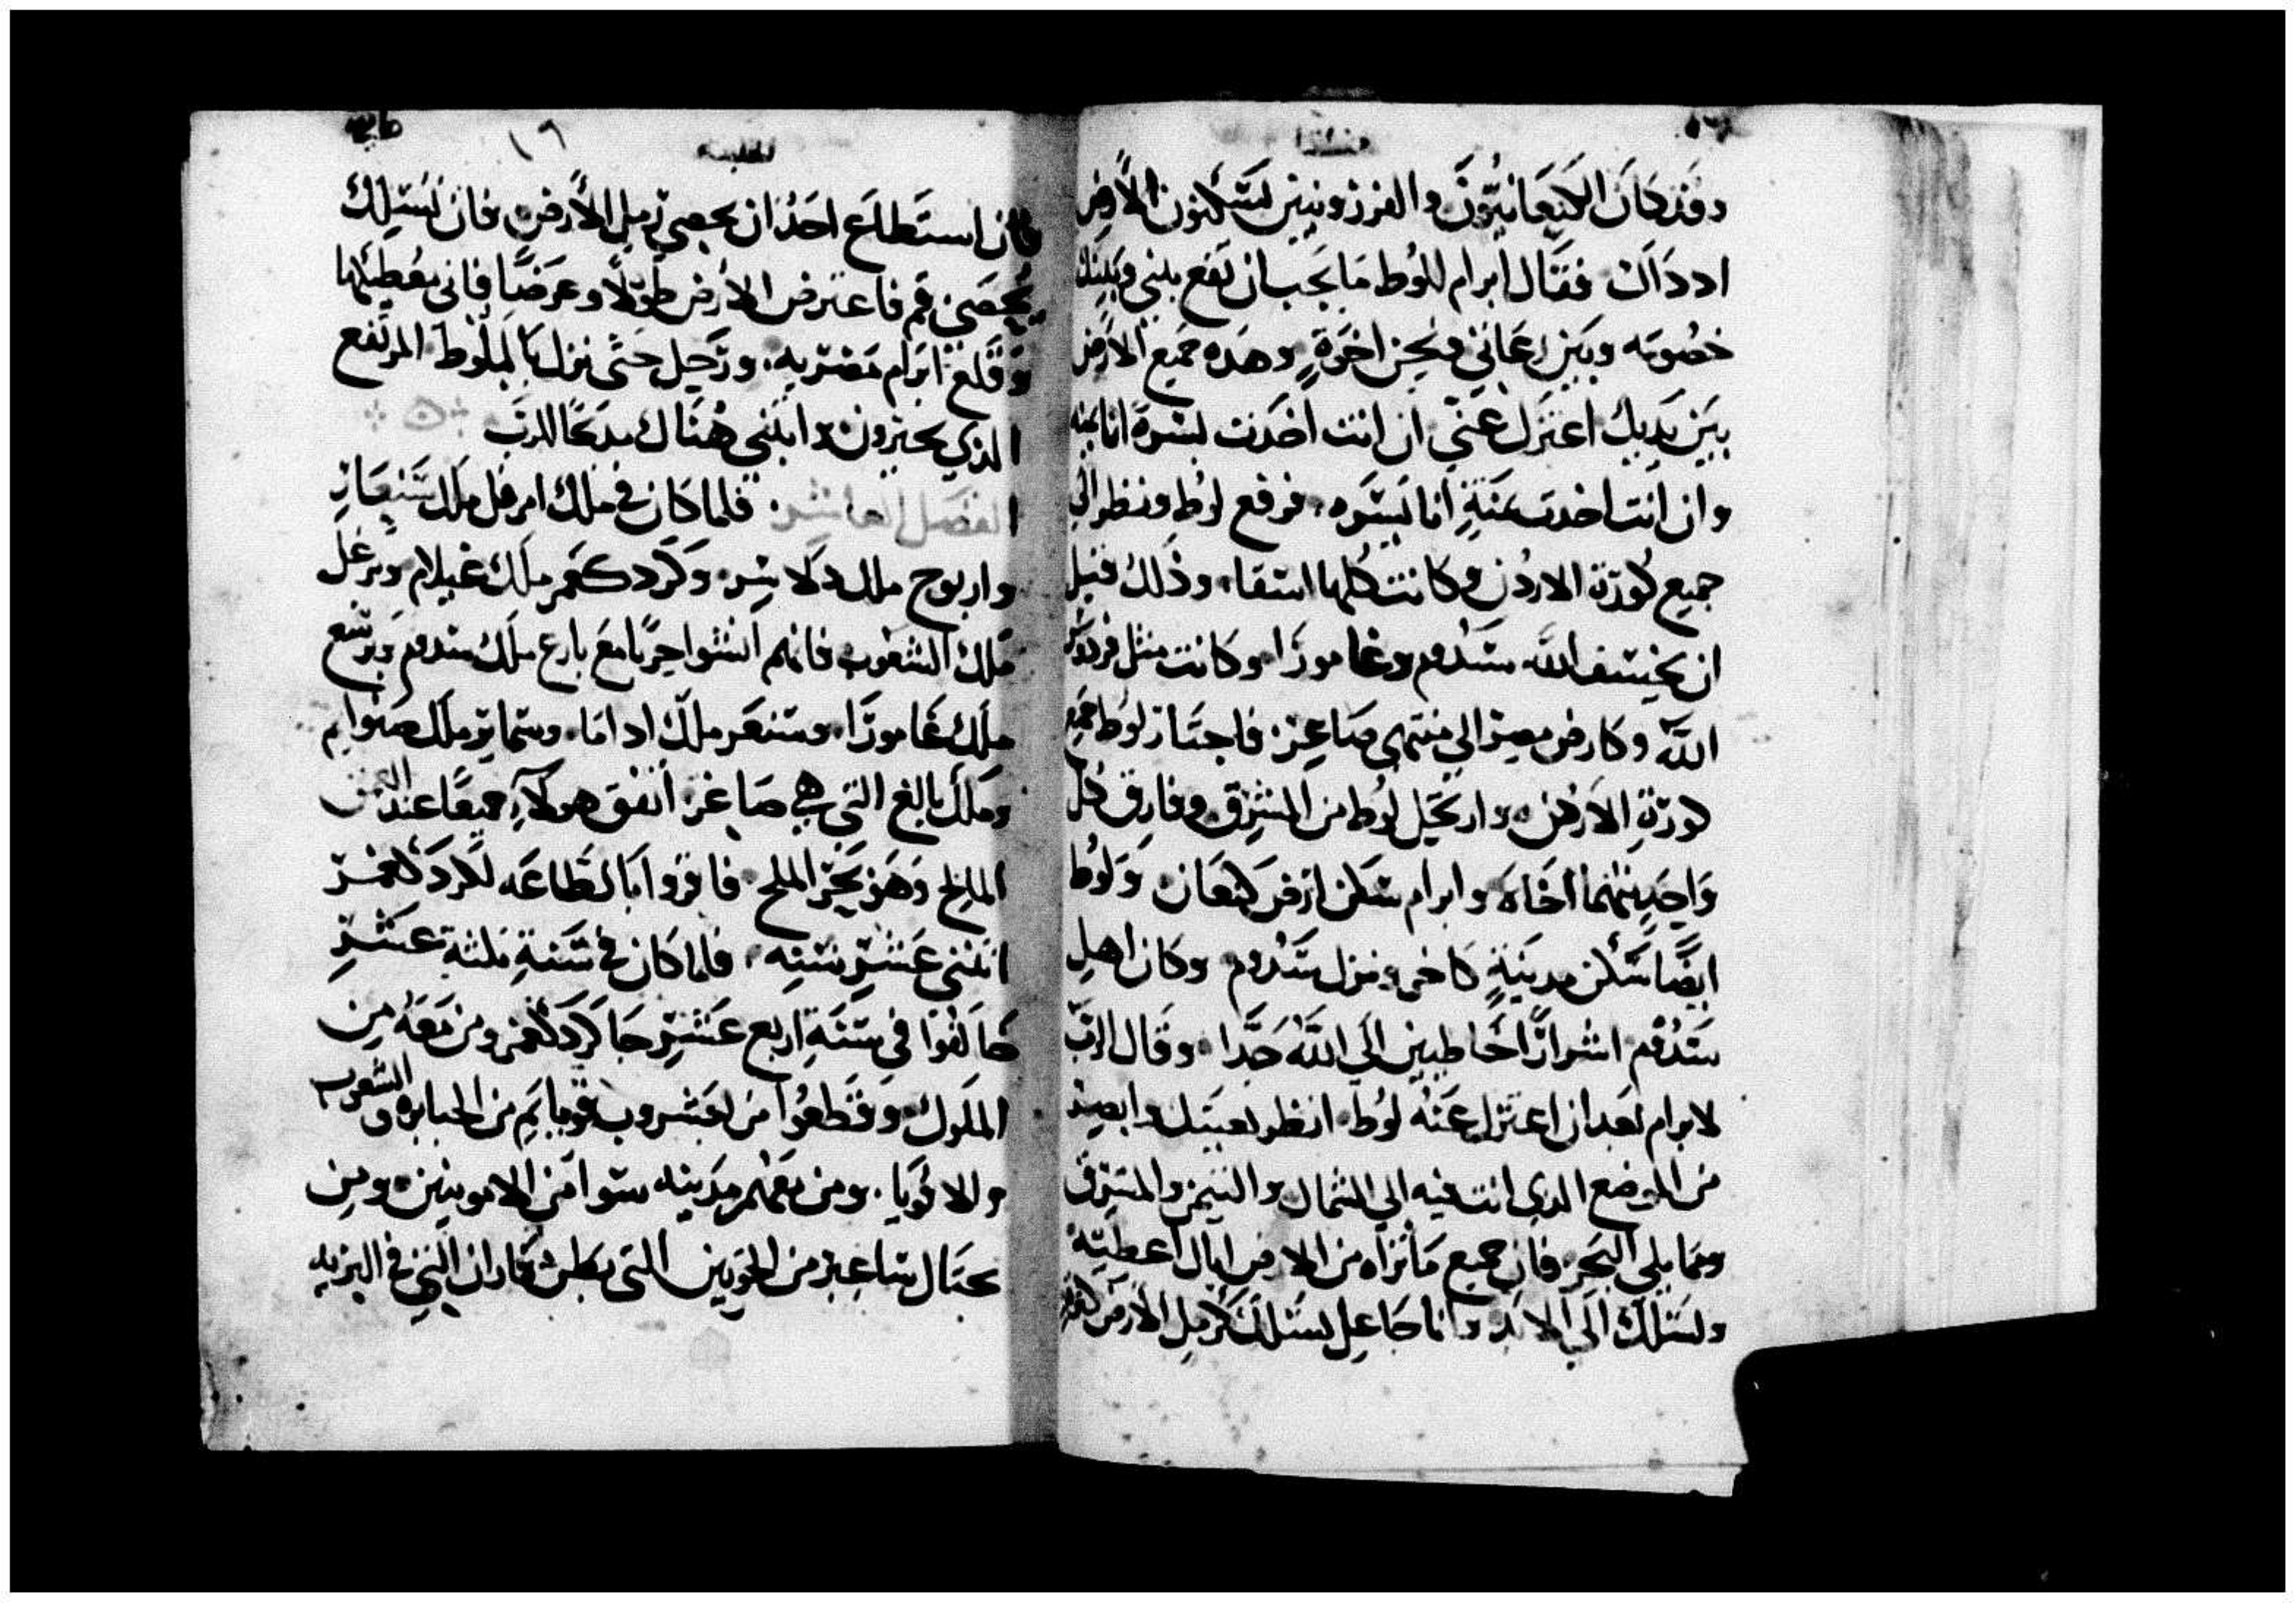 وقد كان الكنعانيون والفرزونيين يسكنون الأرض
اد داك فقال ابرام للوط ما يجب ان تقع بيني وبينك
خصومه وبين رعاتي ونحن اخوة وهده جميع الارض
بين يديك اعتزل عني ان انت اخدت يسرة انا يمنه
وان انت اخدت يمنة انا يسره فرفع لوط ونظر الي
جميع كورة الاردن وكانت كلها استقا وذلك قبل
ان يخسف الله سدوم وغامورا وكانت مثل فردوس
الله وكارض مصر الي منتهي صاعر فاجتاز لوط جميع
كورة الاردن وارتحل لوط من المشرق وفارق كل
واحد منهما اخاه وابرام سكن ارض كنعان ولوط
ايضا سكن مدينة كاخم ونزل سدوم وكان اهل
سدوم اشرارا خاطيين الي الله جدا وقال الرب
لابرام بعد ان اعتزل عنه لوط انظر بعينك وابصر
من الموضع الدي انت فيه الي الشمال والتيمن والمشرق
ومما يلي البحر فان جميع ما تراه من الارض اياك اعطيته
ولنسلك الي الابد وانا جاعل نسلك كرمل الارض
فان استطاع احد ان يحصي رمل الأرض فان نسلك
يحصي قم فاعترض الارض طولا وعرضا فاني معطيكها
وقلع ابرام مضربه ورحل حتي نزل بالبلوط المرتفع
الدي بحبرون وابتني هناك مدبحا للرب
الفصل العاشر فلما كان في ملك امرفل ملك سنعار
واريوح ملك دلاسر وكردكعمر ملك عيلام وترغل
ملك الشعوب فانهم انشوا حربا مع بارع ملك سدوم وبرشع
ملك غامورا وسنعر ملك اداما وسماير ملك صبوايم
وملك بالغ التي هي صاغر اتفق هولاء جميعا عند
المالح وهو بحر الملح فاقروا بالطاعه لكردكعمر
اثنني عشر سنه فلما كان في سنة ثلثة عشر
خالفوا في سنة اربع عشر جا كردكعمر ومن معه من
الملوك وقطعوا من بعشروب قوايم من الجبابره والشعوب
والاقويا ومن معهم مدينه سوا من الاموينين ومن
بجبال ساعير من الحويين التي بطن فاران التي في البريه